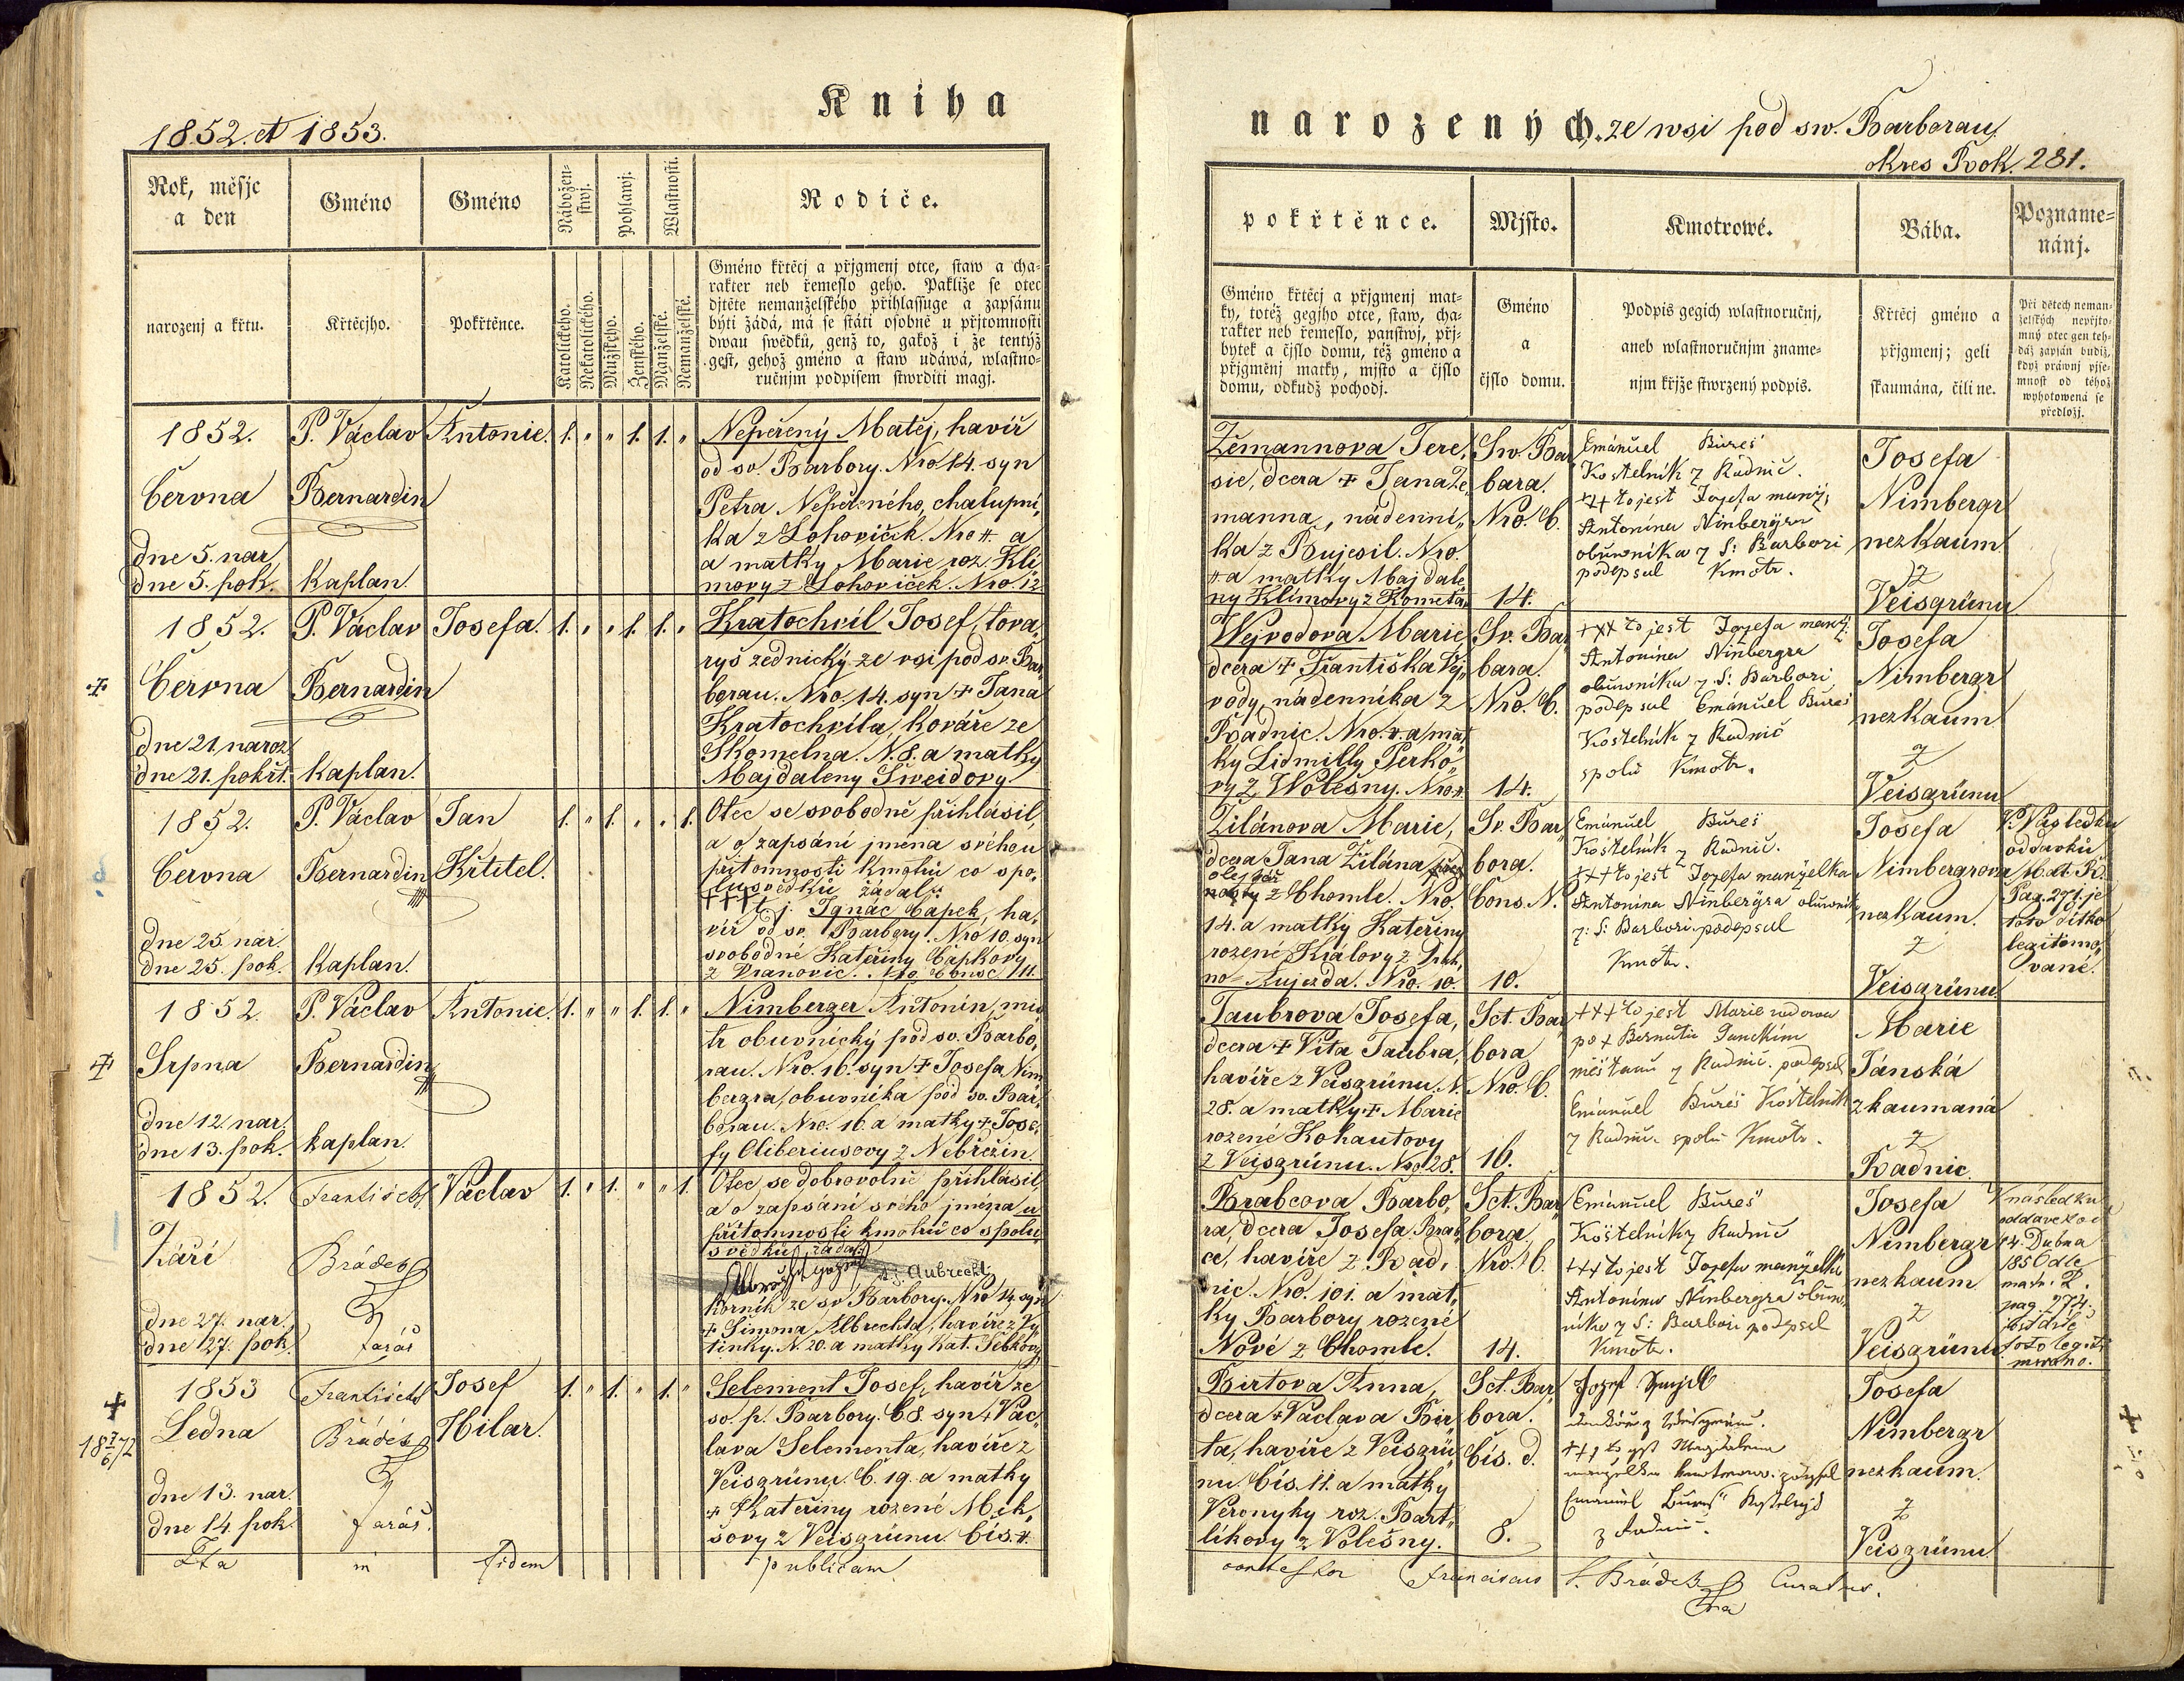 Kniha
1852. et 1853.
Rok, měsjc
a den
Gméno
Gméno
Nábožen-
stwj.
Pohlawj.
Wlastnosti.
Rodiče.
narozenj a křtu.
Křtěcjho.
Pokřtěnce.
Katolického.
Nekatolického.
Mužského.
Ženského.
Manželské.
Nemanželské.
Gméno křtěcj a přjgmenj otce, staw a cha-
rakter neb řemeslo geho. Pakliže se otec
djtěte nemanželského přihlassuge a zapsánu
býti žádá, má se státi osobně u přjtomnosti
dwau swědků, genž to, gakož i že tentýž
gest, gehož gméno a staw udáwá, wlastno-
ručnjm podpisem stwrditi magj.
1852.
Června
dne 5. nar.
dne 5. pok.
P. Václav
Bernardin
kaplan.
Antonie.
1. " " 1. 1. "
Nepřený Matěj, havíř
od sv. Barbory. Nro 14. syn
Petra Nepřeného, chalupní,
ka z Lohoviček. Nro # a
a matky Marie roz. Kli
movy z Lohoviček. Nro 12.
1852.
Června
dne 21. naroz
dne 21. pokřt.
P. Václav
Bernardin
kaplan.
Josefa.
1. " " 1. 1. "
Kratochvil Josef, tova,
ryš zednický ze vsi pod sv. Bar
borau. Nro. 14. syn + Jana
Kratochvila, kováře ze
Skomelna. N. 8. a matky
Majdaleny Šweidovy.
1852.
Června
dne 25. nar.
dne 25. pok.
P. Václav
Bernardin
kaplan.
Jan
Křtitel.
1. " 1. " " 1.
Otec se svobodně přihlásil,
a o zapsání jména svého u
přítomnosti kmotrů co spo,
lusvědků žádal:
+++ t. j. Ignác Čapek, ha,
víř od sv. Barbory. Nro 10. syn
svobodné Kateřiny Čapkovy
z Vranovic. Nro.
1852.
Srpna
dne 12. nar.
dne 13. pok.
P. Václav
Bernardin
kaplan.
Antonie.
1. " " 1. 1. "
Nimberger Antonín, mis
tr obuvnický pod sv. Barbo,
rau. Nro. 16. syn + Josefa Nim
bergra, obuvníka pod sv. Bar,
borau. Nro. 16. a matky + Jose,
fy Oliberiusovy z Nebřezin.
1852.
Září
dne 27. nar.
dne 27. pok.
František
Brádek
farář
Václav
1. " 1. " " 1.
Otec se dobrovolně přihlásil
a o zapsání svého jména u
přítomnosti kmotrů co spolu,
svědků žádal:
t. j. Aubrecht
ze sv. Barbory. Nro 14. syn
+ Šimona Albrechta, havíře z Vy
tinky. N. 20. a matky Kat. Šebkovy
1853
Ledna
dne 13. nar.
dne 14. pok.
František
Brádek
farář.
Josef
Hilar.
1. " 1. " 1. "
Selement Josef, havíř ze
sv. p. Barbory. Č 8. syn + Vác,
lava Selementa, havíře z
Veisgrünu. Č. 19. a matky
+ Kateřiny rozené Mik,
šovy z Veisgrünu. Čís. #.
in fidem publicam
narozených. ze wsi pod sw. Barborau,
okres Rok. 281.
pokřtěnce.
Mjsto.
Kmotrowé.
Bába.
Pozname-
nánj.
Gméno křtěcj a přjgmenj mat-
ky, totéž gegjho otce, staw, cha-
rakter neb řemeslo, panstwj, přj-
bytek a čjslo domu, též gméno a
přjgměnj matky, mjsto a čjslo
domu, odkudž pochodj.
Gméno
a
čjslo domu.
Podpis gegich wlastnoručnj,
aneb wlastnoručnjm zname-
njm křjže stwrzený podpis.
Křtěcj gméno a
přjgmenj; geli
skaumána, čili ne.
Při dětech neman-
želských nepřjto-
mný otec gen teh-
dáž zapsán budiž,
když práwnj pjse-
mnost od téhož
wyhotowená se
předložj.
Zemannova Tere,
sie, dcera + Jana Ze,
manna, nádenní,
ka z Bujesil. Nro.
# a matky Majdale
ny Klímovy z Kometa
Sw. Ba
bara.
Nro. C.
14.
Emánuel Bureš
Kostelník z Radnic.
+++ to jest Jozefa manž,
Antonína Ninbergra
obuwníka z S: Barbori
podepsal Kmotr.
Josefa
Nimbergr
nezkaum.
z
Veisgrünu
Wejvodova Marie
dcera + Františka Vej,
vody, nádenníka z
Radnic. Nro. #. a mat
ky Lidmilly Perko,
vy z Wolešny. Nro #.
Sv. Ba
bara.
Nro. C.
14.
+++ to jest Jozefa manž.
Antonína Ninbergra
obuwníka z S: Barbori,
podepsal Emánuel Bureš
Kostelník z Radnic
spolu Kmotr.
Josefa
Nimbergr
nezkaum
z
Veisgrünu
Žilánova Marie,
dcera Jana Žilána
z Chomle. Nro.
14. a matky Kateřiny
rozené Královy z
Aujezda. Nro. 10.
Sv. Bar
bora.
Čons. N.
10.
Emánuel Bureš
Kostelník z Radnic.
+++ to jest Jozefa manželka
Antonína Ninbergra obuwník
z: S: Barbori podepsal
Kmotr.
Josefa
Nimbergrova
nezkaum.
z
Veisgrünu
V. Následku
oddavků
Mat. R.
Pag. 271. je
toto dítko
legitomo,
vané.
Taubrova Josefa,
dcera + Víta Taubra,
havíře z Veisgrünu. N.
28. a matky + Marie
rozené Kohautovy
z Veisgrünu. Nro 28.
Sct. Bar
bora
Nro. C.
16.
+++ to jest Marie vdova
po +
měšťanu z Radnic. podepsal
Emánuel Bureš Kostelník
z Radnic. spolu Kmotr.
Marie
Jánská
zkaumaná
z
Radnic.
Brabcova Barbo,
ra, dcera Josefa Brab
ce, havíře z Rad,
nic. Nro. 101. a mat,
ky Barbory rozené
Nové z Chomle.
Sct. Bar
bora.
Nro. C.
14.
Emánuel Bureš
Kostelník z Radnic
+++ to jest Jozefa manželka
Antonína Ninbergra obuw,
níka z S: Barbori podepsal
Kmotr.
Josefa
Nimbergr
nezkaum
z
Veisgrünu
V následku
Dubna
matr.
pag. 274.
Birtova Anna,
dcera + Václava Bir
ta, havíře z Veisgrü
nu. Čís. 11. a matky
Veronyky roz. Bart,
líkovy z Volešny.
Sct. Bar
bora.
Čís. d.
8.
Josef
Emanuel Bureš
z Radnic.
Josefa
Nimbergr
nezkaum.
z
Veisgrünu
Franciscus Brádek Curatus.